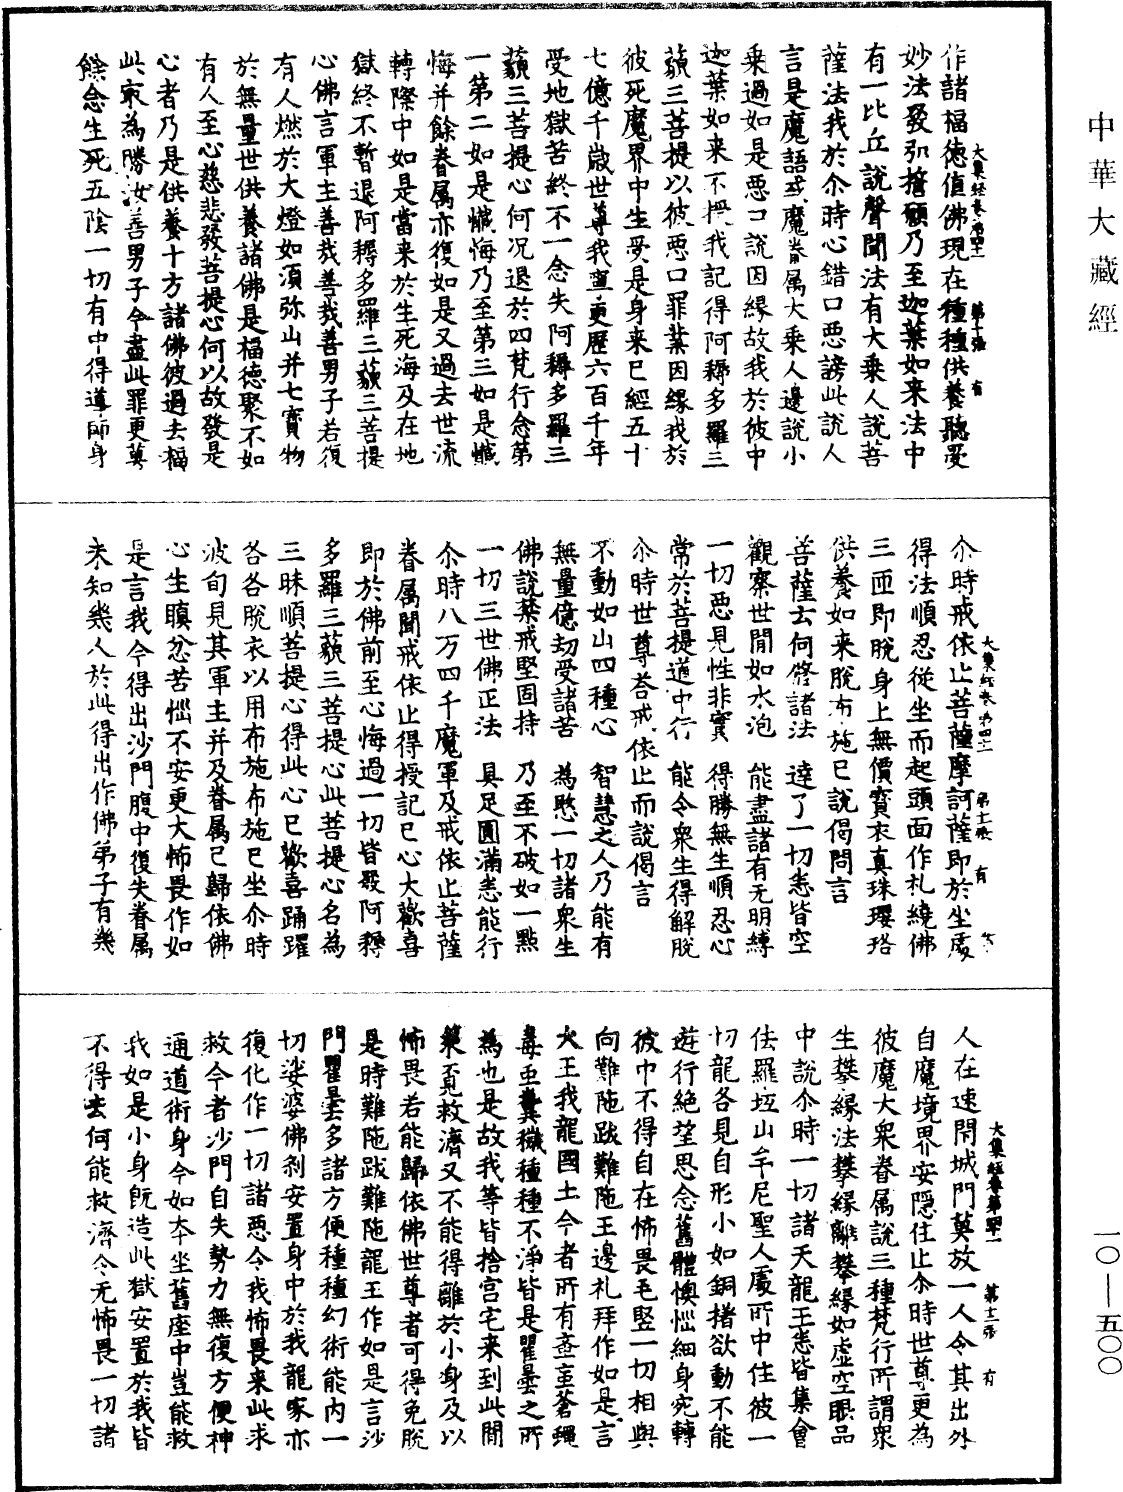 中華大藏經
作諸福德值佛現在種種供養聽受
大集經卷第四十一 第十張 有
妙法發弘擔願乃至迦葉如来法中
有一比丘說聲聞法有大乗人說菩
薩法我於尒時心錯口悪謗此說人
言是魔語或魔眷属大乗人邊說小
乗過如是悪口說因縁故我於彼中
迦葉如来不授我記得阿耨多羅三
藐三菩提以彼悪口罪業因縁我於
彼死魔界中生受是身来已經五十
七億千歳世尊我寧更歷六百千年
受地獄苦終不一念失阿耨多羅三
藐三菩提心何况退於四梵行念第
一第二如是懺悔乃至第三如是懺
悔并餘眷属亦復如是又過去世流
轉際中如是當来於生死海及在地
獄終不暫退阿耨多羅三藐三菩提
心佛言軍主善㢤善㢤善男子若復
有人燃於大燈如須弥山并七寳物
於無量世供養諸佛是福德聚不如
有人至心慈悲發菩提心何以故發是
心者乃是供養十方諸佛彼過去福
此㝡為勝汝善男子今盡此罪更莫
餘念生死五陰一切有中得導師身
尒時戒依止菩薩摩訶薩即於坐處
大集經卷第四十一 第十一張 有
得法順忍従坐而起頭面作礼繞佛
三匝即脫身上無價寳衣真珠瓔珞
供養如来脫布施已說偈問言
菩薩云何修諸法 達了一切悉皆空
觀察世間如水泡 能盡諸有无明縛
一切悪見性非實 得勝無生順忍心
常於菩提道中行 能令衆生得解脫
尒時世尊荅戒依止而說偈言
不動如山四種心 智慧之人乃能有
無量億劫受諸苦 為愍一切諸衆生
佛說禁戒堅固持 乃至不破如一點
一切三世佛正法 具足圓滿悉能行
尒時八万四千魔軍及戒依止菩薩
眷属聞戒依止得授記已心大歡喜
即於佛前至心悔過一切皆發阿耨
多羅三藐三菩提心此菩提心名為
三昧順菩提心得此心已歡喜踊躍
各各脫衣以用布施布施已坐尒時
波旬見其軍主并及眷属已歸依佛
心生瞋忿苦惱不安更大怖畏作如
是言我今得出沙門腹中復失眷属
未知幾人於此得出作佛弟子有幾
人在速閇城門莫放一人令其出外
大集經卷第四十一 第十二張 有
自魔境界安隱住止尒時世尊更為
彼魔大衆眷属說三種梵行所謂衆
生攀縁法攀縁離攀縁如虛空眼品
中說尒時一切諸天龍王悉皆集會
佉羅坻山牟尼聖人處所中住彼一
切龍各見自形小如銅楮欲動不能
遊行絶望思念舊體懊惱細身宛轉
彼中不得自在怖畏毛竪一切相與
向難陁跋難陁王邊礼拜作如是言
大王我龍國土今者所有𧎗䖟蒼蠅
毒䖝糞穢種種不淨皆是瞿曇之所
為也是故我等皆捨宮宅来到此間
葉覔救濟又不能得離於小身及以
怖畏若能歸依佛世尊者可得免脫
是時難陁跋難陁龍王作如是言沙
門瞿曇多諸方便種種幻術能内一
切娑婆佛刹安置身中於我龍家亦
復化作一切諸悪令我怖畏来此求
救今者沙門自失勢力無復方便神
通道術身今如本坐舊座中豈能救
我如是小身旣造此獄安置於我皆
不得去何能救濟令无怖畏一切諸
一〇—五〇〇